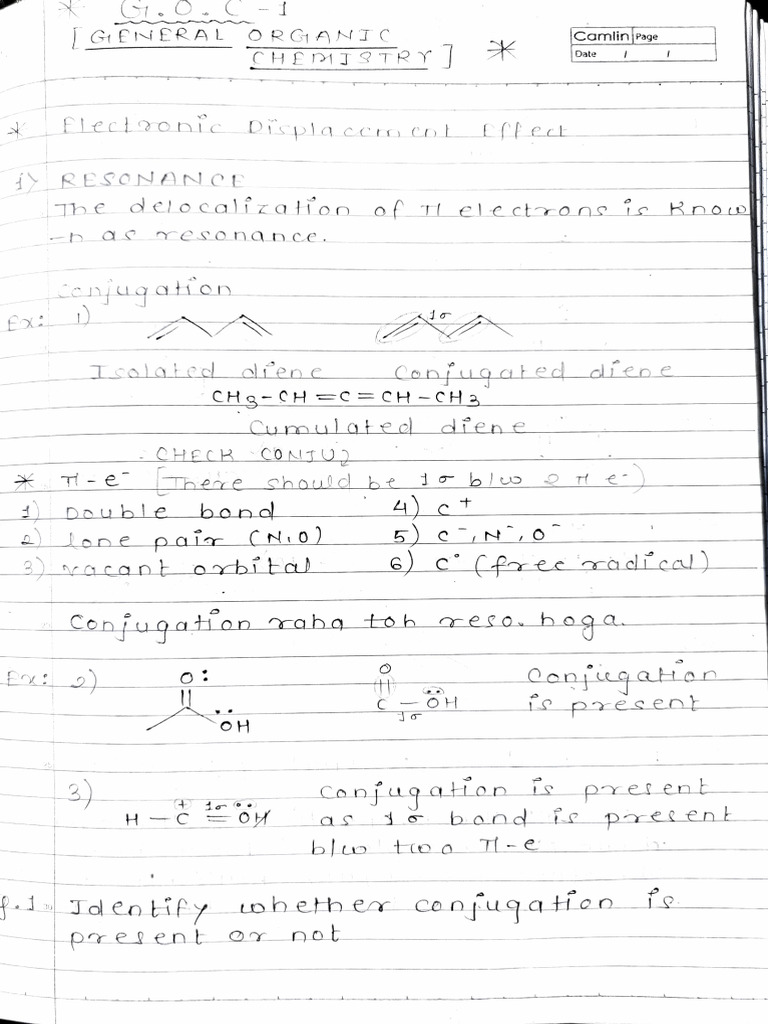 * G.O.C-1
[GENERAL ORGANIC
CHEMISTRY] *
Camlin Page
Date / /
* Electronic Displacement Effect
1> RESONANCE
The delocalization of π electrons is know
-n as resonance.
Conjugation
Ex: 1)
1σ
Isolated diene Conjugated diene
CH3-CH=C=CH-CH3
Cumulated diene
CHECK CONJU2
* π-e⁻ [There should be 1σ b/w 2 π e⁻)
1) Double bond 4) C⁺
2) lone pair (N,O) 5) C⁻, N⁻, O⁻
3) vacant orbital 6) C• (free radical)
Conjugation raha toh reso. hoga.
Ex: 2) O: O Conjugation
OH C-OH is present
1σ
3) Conjugation is present
H-C⁺ 1σ = OH as 1σ bond is present
b/w two π-e
Q.1 Identify whether conjugation is
present or not